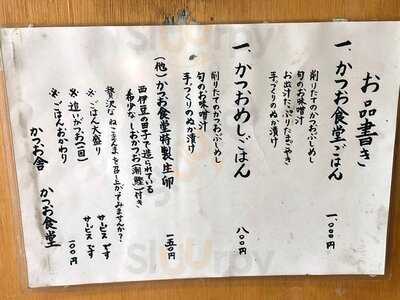 お品書き
一、かつお食堂ごはん 一、000円
削りたてのかつおぶしめし
旬のお味噌汁
お出汁たっぷりたまごやき
手づくりのぬか漬け
一、かつおめしごはん 八00円
削りたてのかつおぶしめし
旬のお味噌汁
手づくりのぬか漬け
(他)かつお食堂特製生卵 一五0円
西伊豆の田子で造られている
希少な しおかつお(潮鰹)付き
贅沢なねこまんまを召し上がってみませんか?
※ごはん大盛り サービスです
※追いがつお(一回) サービスです
※ごはんおかわり 一00円
かつお舎 かつお食堂